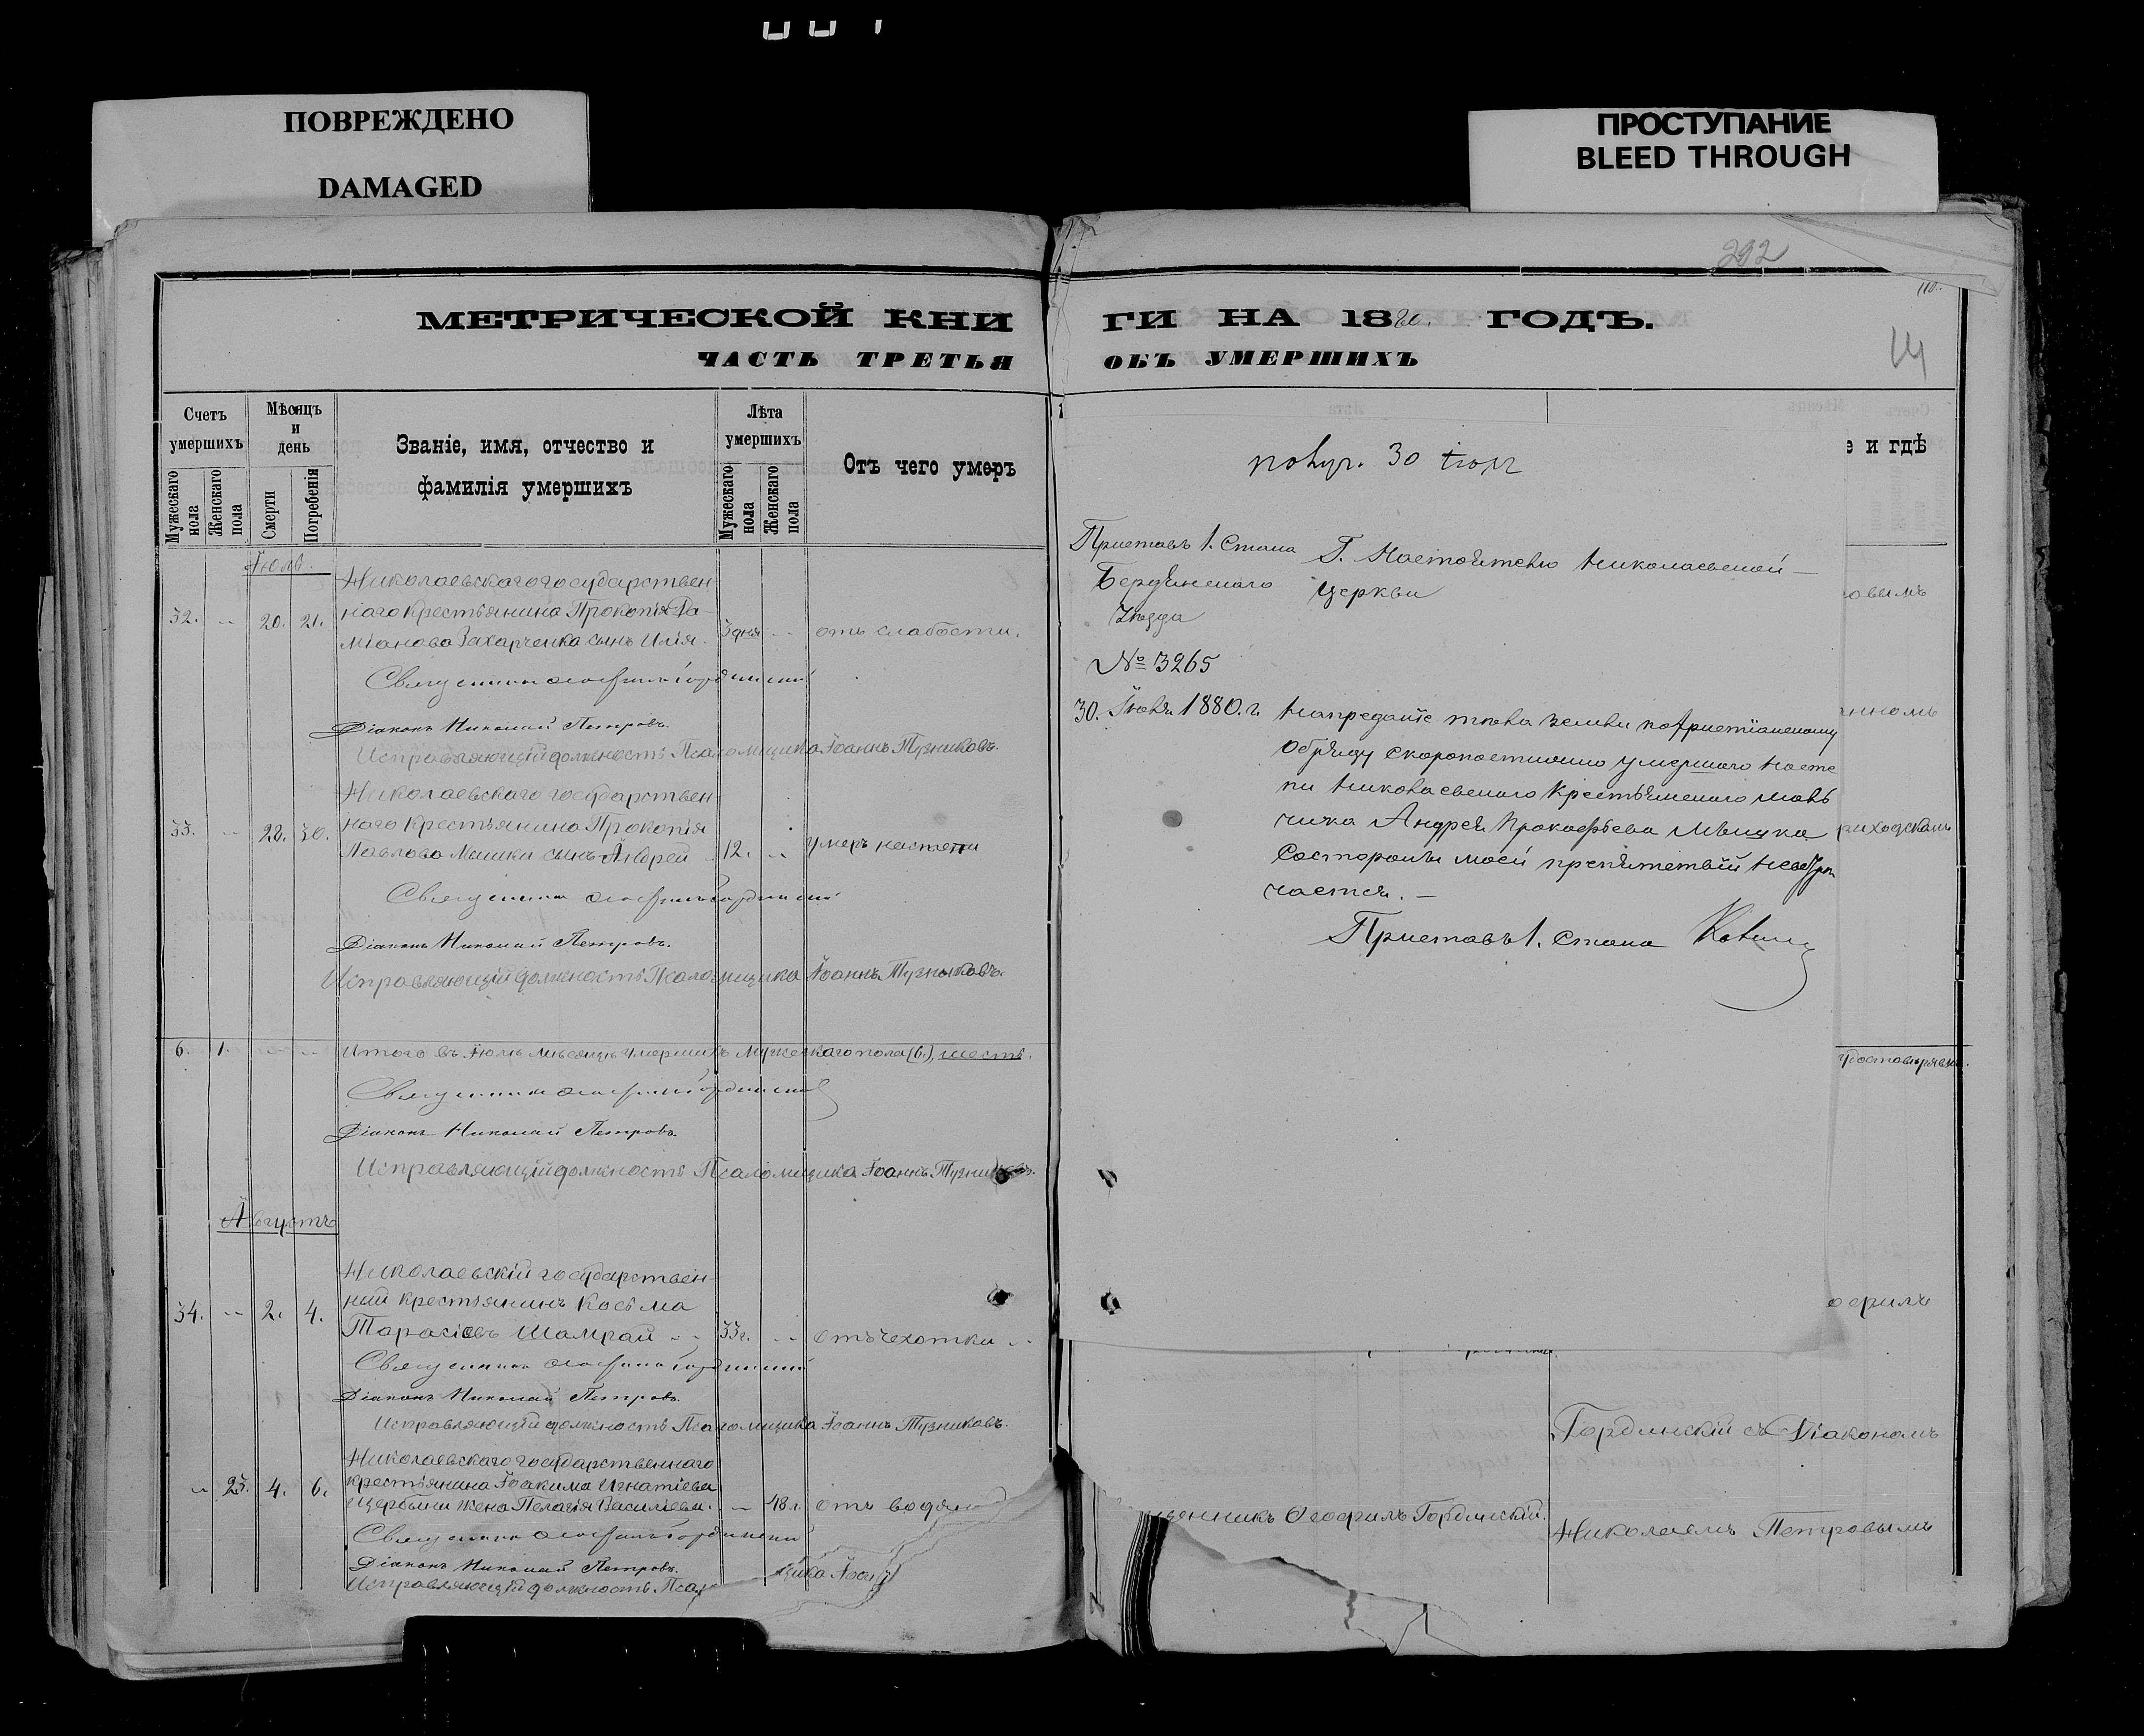 ПОВРЕЖДЕНО
DAMAGED
ПРОСТУПАНИЕ
BLEED THROUGH
292
110.
МЕТРИЧЕСКОЙ КНИ
ЧАСТЬ ТРЕТЬЯ
ГИ НА 1880. ГОДЪ.
ОБЪ УМЕРШИХЪ
Счетъ умершихъ
Мужескаго пола
Женскаго пола
Мѣсяцъ и день
Смерти
Погребенія
Званіе, имя, отчество и
фамилія умершихъ
Лѣта умершихъ
Мужескаго пола
Женскаго пола
Отъ чего умеръ
Іюль.
Николаевскаго государствен-
32. -- 20. 21. наго крестьянина Прокопія Да-
міанова Захарченка сынъ Илія. 3 дня -- отъ слабости.
Священникъ Ѳеофилъ Гординскій
Діаконъ Николай Петровъ.
Исправляющій должность Псаломщика Іоаннъ Тузниковъ.
Николаевскаго государствен-
33. -- 28. 30. наго крестьянина Прокопія
Павлова Мишки сынъ Андрей 12. -- умеръ на степи
Священникъ Ѳеофилъ Гординскій
Діаконъ Николай Петровъ.
Исправляющій должность Псаломщика Іоаннъ Тузниковъ.
6. 1. -- -- Итого въ Іюлѣ мѣсяцѣ умершихъ мужескаго пола (6.), шесть.
Священникъ Ѳеофилъ Гординскій
Діаконъ Николай Петровъ.
Исправляющій должность Псаломщика Іоаннъ Тузниковъ.
Августъ
Николаевскій государствен-
34. -- 2. 4. ный крестьянинъ Косьма
Тарасіевъ Шамрай -- 33 г. -- отъ чахотки --
Священникъ Ѳеофилъ Гординскій
Діаконъ Николай Петровъ.
Исправляющій должность Псаломщика Іоаннъ Тузниковъ.
Николаевскаго государственнаго
-- 23. 4. 6. крестьянина Іоакима Игнатіева
Щербины жена Пелагія Васильева. -- 48 г. отъ водян
Священникъ Ѳеофилъ Гординскій
Діаконъ Николай Петровъ.
Исправляющій должность Пса
щика Іоан
е и гдѣ
получ. 30 іюля
Приставъ 1. Стана
Бердянскаго
Уѣзда
№ 3265
30. Іюля 1880. г.
Г. Настоятелю Николаевской
Церкви
На преданіе тѣла землѣ по Христіанскому
обряду скоропостижно умершаго на сте
пи Николаевскаго Крестьянскаго маль
чика Андрея Прокофьева Мишка
со стороны моей препятствій не встрѣ
чается. —
Приставъ 1. Стана
овымъ
нномъ
риходскомъ
удостовѣряемъ.
офилъ
Гординскій съ Діакономъ
щенникъ Ѳеофилъ Гординскій.
Николаемъ Петровымъ